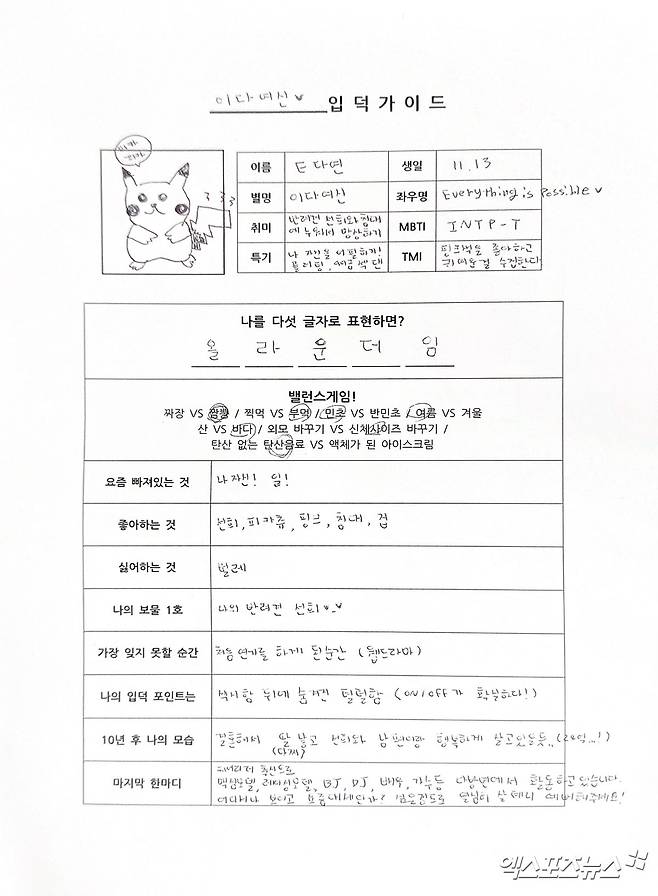 이다여신♥ 입덕가이드
피카
피카
이름 E다연 생일 11.13
별명 이다여신 좌우명 Everything is possible♥
취미 반려견 선희와 침대에 누워서 망상하기 MBTI INTP-T
특기 나 자신을 어필하기! TMI 핑크색을 좋아하고 귀여운걸 수집한다
나를 다섯 글자로 표현하면?
올 라 운 더 임
밸런스게임!
짜장 VS 짬뽕 / 찍먹 VS 부먹 / 민초 VS 반민초 / 여름 VS 겨울
산 VS 바다 / 외모 바꾸기 VS 신체사이즈 바꾸기 /
탄산 없는 탄산음료 VS 액체가 된 아이스크림
요즘 빠져있는 것 나 자신! 일!
좋아하는 것 선희, 피카츄, 핑크, 침대, 컵
싫어하는 것 벌레
나의 보물 1호 나의 반려견 선희
가장 잊지 못할 순간 처음 연기를 하게 된 순간 (웹드라마)
나의 입덕 포인트는 섹시함 뒤에 숨겨진 털털함 (ON/OFF가 확실하다!)
10년 후 나의 모습 결혼해서 딸 낳고 선희와 남편이랑 행복하게 살고있을듯..
마지막 한마디 치어리더 출신으로
맥심모델, 레이싱모델, BJ, DJ, 배우, 가수등 다방면에서 활동하고 있습니다.
열심히 살테니 예뻐해주세요!
엑스포츠뉴스